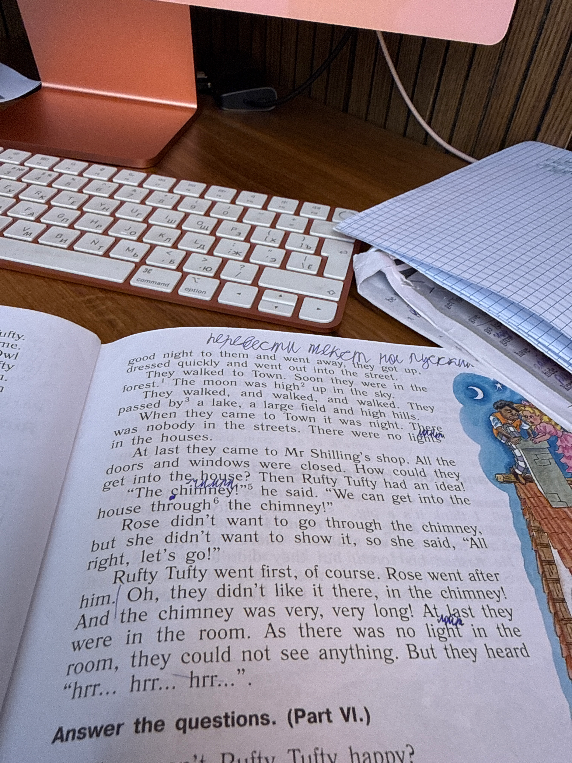 перевести текст на русский
good night to them and went away, they got up,
dressed quickly and went out into the street.
They walked to Town. Soon they were in the
forest.¹ The moon was high² up in the sky.
They walked, and walked, and walked. They
passed by³ a lake, a large field and high hills.
When they came to Town it was night. There
was nobody in the streets. There were no lights
in the houses.
At last they came to Mr Shilling's shop. All the
doors and windows were closed. How could they
get into the house? Then Rufty Tufty had an idea!
“The chimney!”⁵ he said. “We can get into the
house through⁶ the chimney!”
Rose didn't want to go through the chimney,
but she didn't want to show it, so she said, “All
right, let's go!”
Rufty Tufty went first, of course. Rose went after
him. Oh, they didn't like it there, in the chimney!
And the chimney was very, very long! At last they
were in the room. As there was no light in the
room, they could not see anything. But they heard
“hrr... hrr... hrr...”.
Answer the questions. (Part VI.)
Rufty Tufty happy?
command
option